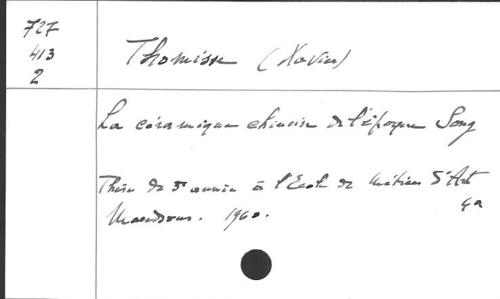 727
413
2
Thomisse (Xavier)
La céramique chinoise de l'époque Song
Thèse de 3e année à l'Ecole de Métiers d'Art
1960. 4a